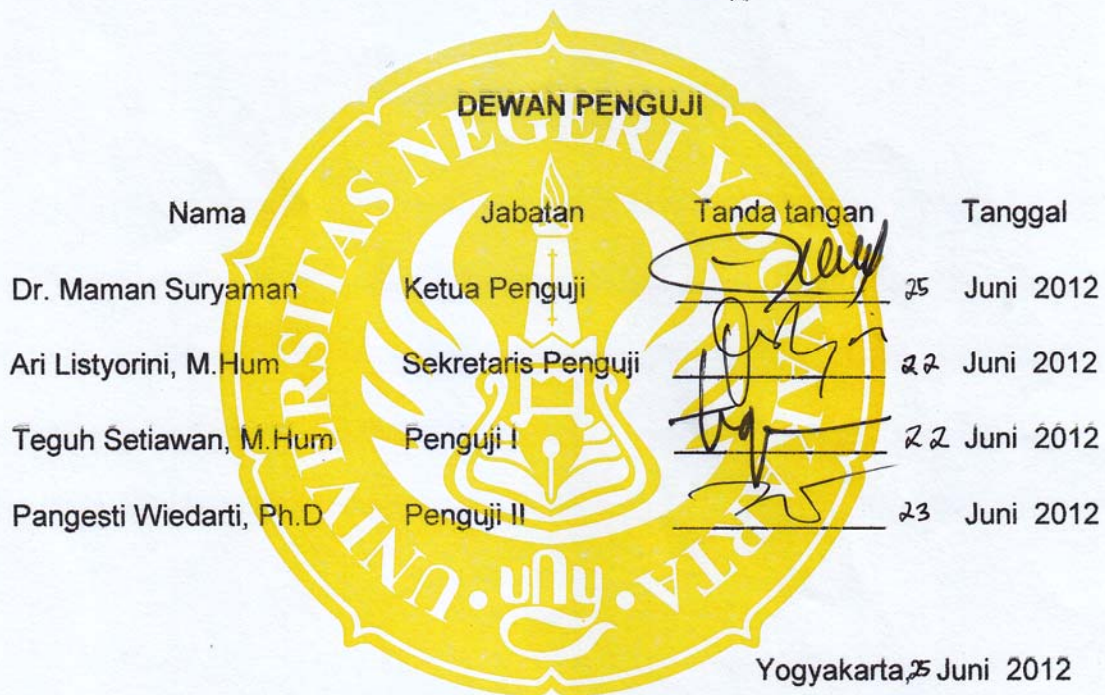 DEWAN PENGUJI
Nama Jabatan Tanda tangan Tanggal
Dr. Maman Suryaman Ketua Penguji 25 Juni 2012
Ari Listyorini, M.Hum Sekretaris Penguji 22 Juni 2012
Teguh Setiawan, M.Hum Penguji I 22 Juni 2012
Pangesti Wiedarti, Ph.D Penguji II 23 Juni 2012
UNIVERSITAS NEGERI YOGYAKARTA
uny
Yogyakarta, 25 Juni 2012